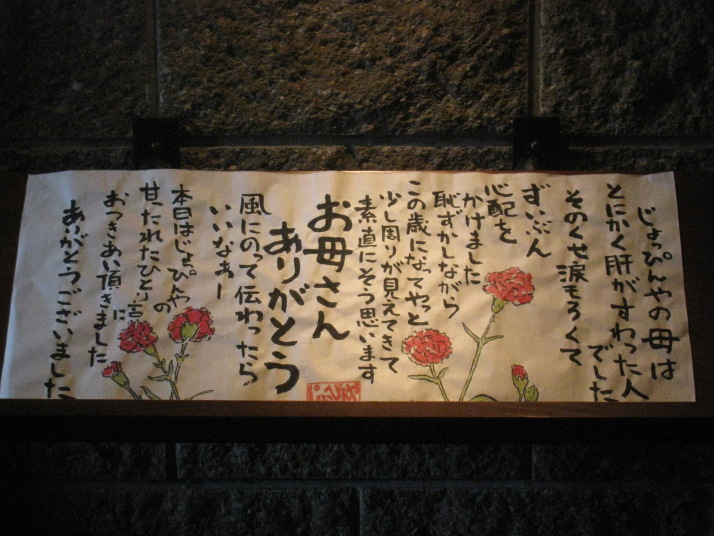 じょっぴんやの母は
とにかく肝がすわった人
でした
そのくせ涙もろくて
ずいぶん
心配を
かけました
恥ずかしながら
この歳になってやっと
少し周りが見えてきて
素直にそう思います
お母さん
ありがとう
風にのって伝わったら
いいなぁー
本日はじょっぴんや
の
甘ったれたひとり言
に
おつきあい頂きました
ありがとうございました